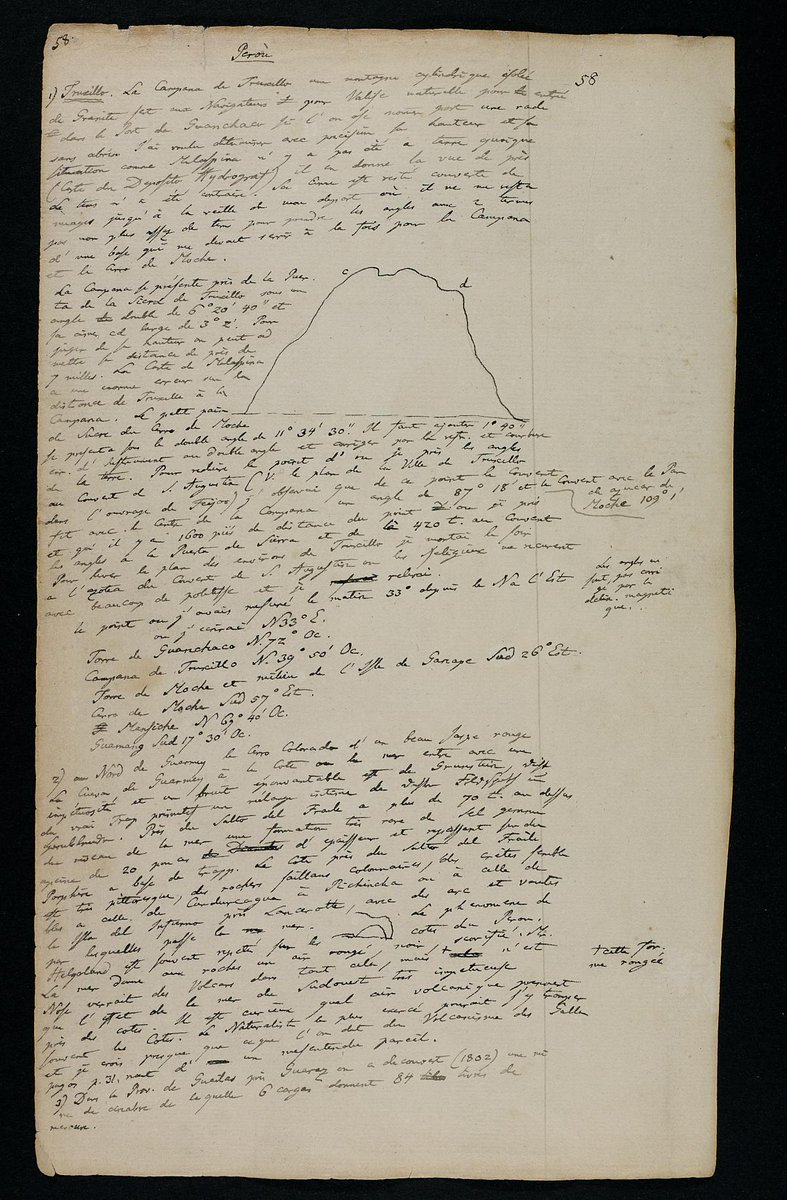 58
Peroù
58
1) Truxillo. La Campana de Truxillo une montagne cylindrique isolée
de Granite sert aux Navigateurs pour Valise naturelle pour entrer
dans le Port de Guanchaco si l'on ose nommer port une rade
sans abris. J'ai voulu déterminer avec précision sa hauteur et sa
situation comme Malaspina n'y a pas été a terre quoique
(Carte du Deposito Hydrograf) il en donne la vue de près
Le tems m'a été contraire. Sa Cime est resté couverte de
nuages jusqu'à la veille de mon depart où il ne me resta
pas non plus assez de tems pour prendre les angles aux 2 termes
d'une base qui me devait servir à la fois pour la Campana
et le Cerro de Moche.
La Campana se présente près de la Puer
ta de la Sierra de Truxillo sous un
angle double de 6° 20' 40" et
sa cime, cd large de 3° 2'. Pour
juger de sa hauteur on peut ad
mettre sa distance de près de
7 milles. La Carte de Malaspina
a une énorme erreur sur la
distance de Truxillo à la
Campana. Le petit pain
c
d
de Sucre du Cerro de Moche
se presenta sous le double angle de 11° 34' 30". Il faut ajouter 1° 40"
err. de l'instrument au double angle et corriger par la refr. et courbure
de la terre. Pour reduire le point d'où je pris les angles
au Couvent de S. Augustin (V. le plan de la Ville de Truxillo
dans l'ouvrage de Feijoo) j'observai que de ce point le Couvent
fit avec le Centre de la Campana un angle de 87° 18' et le Couvent avec le Pan
de açucar de
Moche 109° 1'
et qu'il y a 1600 piés de distance du point d'où je pris
les angles à la Puerta de Sierra et de 420 t. au Couvent
Pour lever le plan des environs de Truxillo je montai le soir
a l'azotea du Couvent de S. Augustin où les Religieux me recurent
avec beaucoup de politesse et je relevai.
le point où j'avais mesuré le matin 33° depuis le N a l'Est
où j'écrirai N33°E.
Les angles ne
sont pas corri
gé par la
déclin. magneti
que.
Torre de Guanchaco N. 72° Oc.
Campana de Truxillo N. 39° 50' Oc.
Torre de Moche et milieu de l'Isle de Garage Sud 26° Est.
Cerro de Moche Sud 57° Est.
Mansiche N 69° 40' Oc.
Guamang Sud 17° 30' Oc.
2) au Nord de Guarmey le Cerro Colorado d'un beau Jaspe rouge
La Cueva de Guarmey à la Cote où la mer entre avec une
impétuosité et un bruit épouvantable est de Grunstein,
du vrai Trap primitif un mélange intime de
Hornblende. Près du Salto del Fraile a plus de 70 t. au dessus
du niveau de la mer une formation très rare de Sel gemme
ayant de 20 pouces d'épaisseur et reposant sur du
Porphire a base de trapp. La Cote près du Salto del Fraile
est très pittoresque, des rochers saillans colonnaires, des crêtes sembla
bles a celle de Condurcagua à Pichincha ou à celle de
la Isla del Infierno près Lancerotte, avec des arc et voutes
par lesquelles passe la mer. Le phenomene de
Helgoland est souvent repeté sur les cotes du Perou.
La mer donne aux roches un air rongé, noir, scorifié. Mr.
+ cette for-
me rongée
Nose verrait des Volcans dans tout cela, mais + n'est
que l'effet de la mer du Sudouest très impetueuse
près des cotes. Il est curieux quel air volcanique prennent
souvent les Cotes. Le Naturaliste le plus exercé pourait s'y tromper
et je crois presque que ce que l'on dit du Volcanisme des Galla
pagos p. 31. nait d'un mesentendu pareil.
3) Dans la Prov. de Guailas près Guaraz on a decouvert (1802) une mi
ne de cinabre de laquelle 6 cargas donnent 84 livres de
mercure.